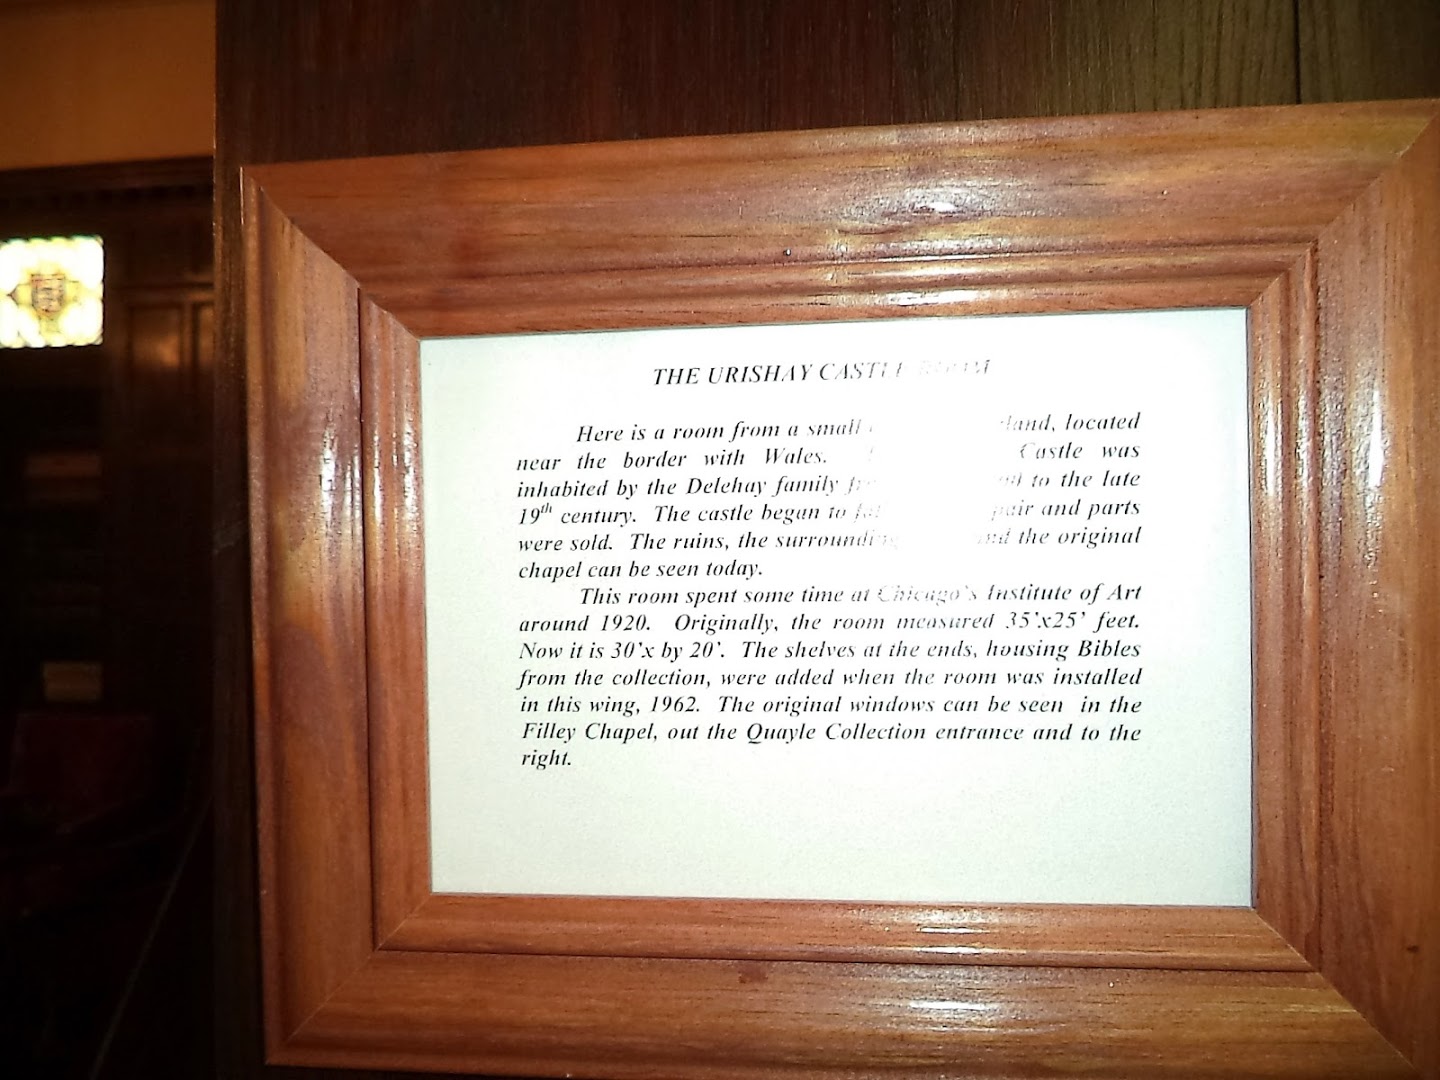 THE URISHAY CASTLE ROOM
Here is a room from a small located
near the border with Wales. Castle was
inhabited by the Delehay family to the late
19th century. The castle began to and parts
were sold. The ruins, the surrounding and the original
chapel can be seen today.
This room spent some time at Chicago's Institute of Art
around 1920. Originally, the room measured 35'x25' feet.
Now it is 30'x by 20'. The shelves at the ends, housing Bibles
from the collection, were added when the room was installed
in this wing, 1962. The original windows can be seen in the
Filley Chapel, out the Quayle Collection entrance and to the
right.